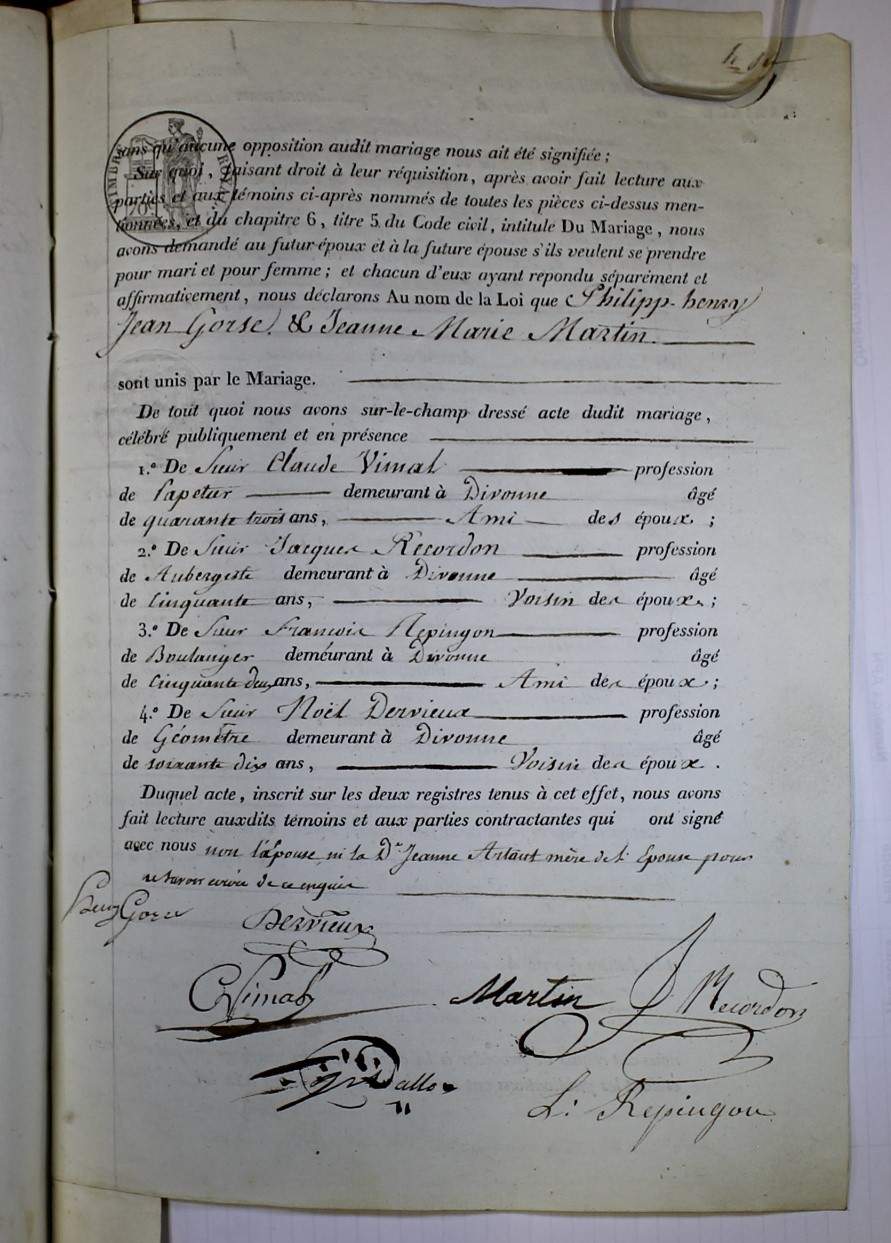 TIMBRE ROYAL
sans qu'aucune opposition audit mariage nous ait été signifiée ;
Sur quoi, faisant droit à leur réquisition, après avoir fait lecture aux
parties et aux témoins ci-après nommés de toutes les pièces ci-dessus men-
tionnées, et du chapitre 6, titre 5 du Code civil, intitule Du Mariage, nous
avons demandé au futur époux et à la future épouse s'ils veulent se prendre
pour mari et pour femme ; et chacun d'eux ayant repondu séparément et
affirmativement, nous déclarons Au nom de la Loi que Philipp-henry
Jean Gorse. & Jeanne Marie Martin.
sont unis par le Mariage.
De tout quoi nous avons sur-le-champ dressé acte dudit mariage,
célébré publiquement et en présence
1.º De Sieur Claude Vimal profession
de Papetier demeurant à Divonne âgé
de quarante trois ans, Ami des époux ;
2.º De Sieur Jacques Recordon profession
de Aubergiste demeurant à Divonne âgé
de Cinquante ans, Voisin des époux ;
3.º De Sieur François Repingon profession
de Boulanger demeurant à Divonne âgé
de Cinquante deux ans, Ami des époux ;
4.º De Sieur Noël Dervieux profession
de Géomètre demeurant à Divonne âgé
de soixante dix ans, Voisin des époux .
Duquel acte, inscrit sur les deux registres tenus à cet effet, nous avons
fait lecture auxdits témoins et aux parties contractantes qui ont signé
avec nous non l'épouse ni la De Jeanne Artaut mère de l'Epouse pour
ne savoir écrire de ce enquise
Henry Gorse
Dervieux
C Vimal
Martin J Recordon
L: Repingon